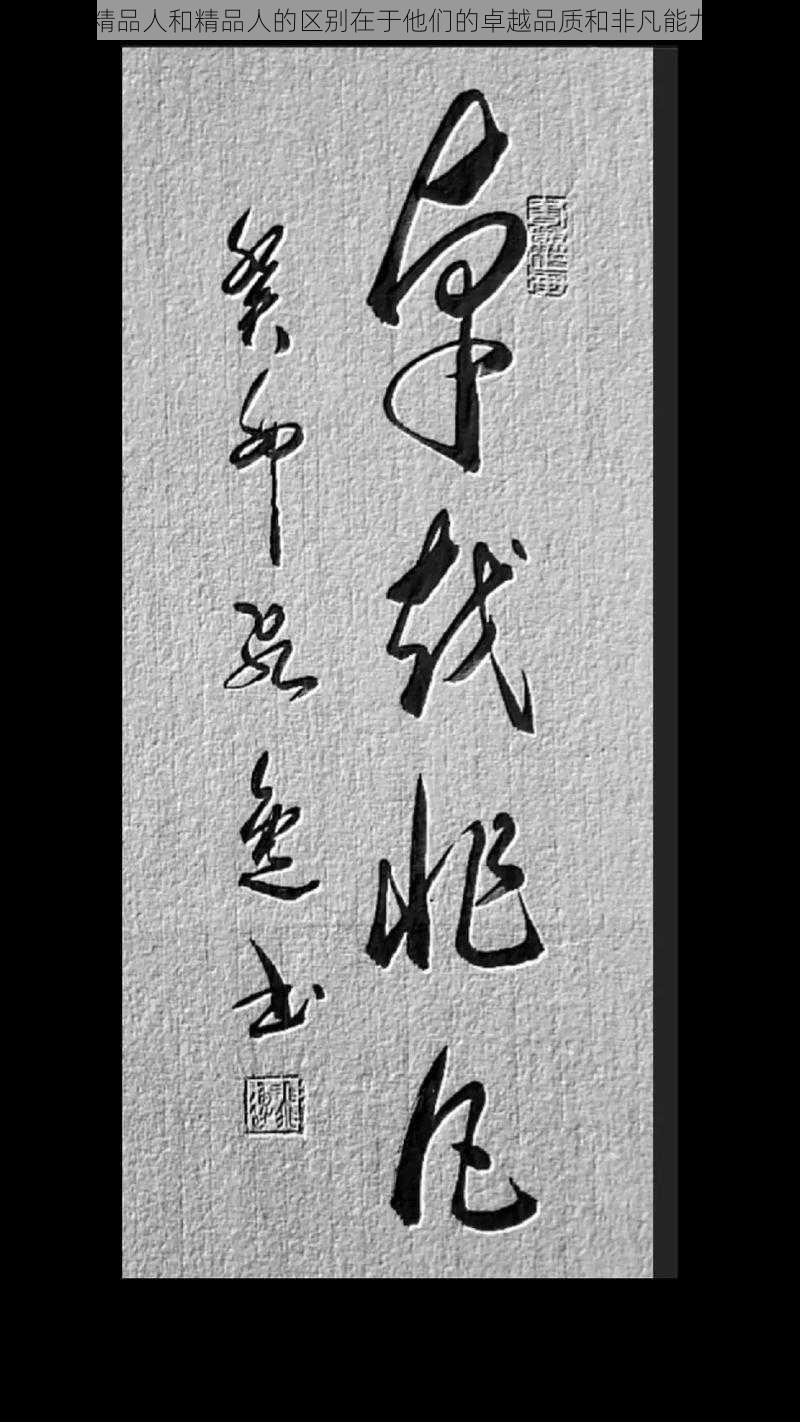 精品人和精品人的区别在于他们的卓越品质和非凡能力
卓越非凡
癸卯
书